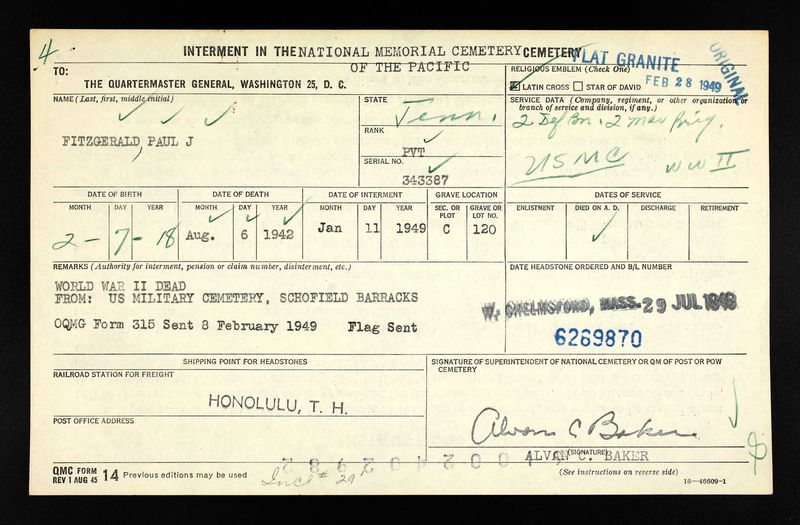 4
INTERMENT IN THE NATIONAL MEMORIAL CEMETERY CEMETERY
OF THE PACIFIC
FLAT GRANITE
FEB 28 1949
ORIGINAL
TO:
THE QUARTERMASTER GENERAL, WASHINGTON 25, D. C.
RELIGIOUS EMBLEM (Check One)
LATIN CROSS STAR OF DAVID
NAME (Last, first, middle initial)
FITZGERALD, PAUL J
STATE
Tenn.
RANK
PVT
SERIAL NO.
343387
SERVICE DATA (Company, regiment, or other organization or
branch of service and division, if any.)
2 Def Bn. 2 Mar Brig.
USMC WW II
DATE OF BIRTH DATE OF DEATH DATE OF INTERMENT GRAVE LOCATION DATES OF SERVICE
MONTH DAY YEAR MONTH DAY YEAR MONTH DAY YEAR SEC. OR PLOT GRAVE OR LOT NO. ENLISTMENT DIED ON A. D. DISCHARGE RETIREMENT
2 - 7 - 18 Aug. 6 1942 Jan 11 1949 C 120
REMARKS (Authority for interment, pension or claim number, disinterment, etc.)
WORLD WAR II DEAD
FROM: US MILITARY CEMETERY, SCHOFIELD BARRACKS
OQMG Form 315 Sent 8 February 1949 Flag Sent
DATE HEADSTONE ORDERED AND B/L NUMBER
W. CHELMSFORD, MASS. 29 JUL 1949
6269870
SHIPPING POINT FOR HEADSTONES
RAILROAD STATION FOR FREIGHT
HONOLULU, T. H.
POST OFFICE ADDRESS
SIGNATURE OF SUPERINTENDENT OF NATIONAL CEMETERY OR QM OF POST OR POW
CEMETERY
Alvan C Baker
(SIGNATURE)
ALVAN C. BAKER
(See instructions on reverse side)
QMC FORM
REV 1 AUG 45 14 Previous editions may be used
Incl # 29
16—46609-1